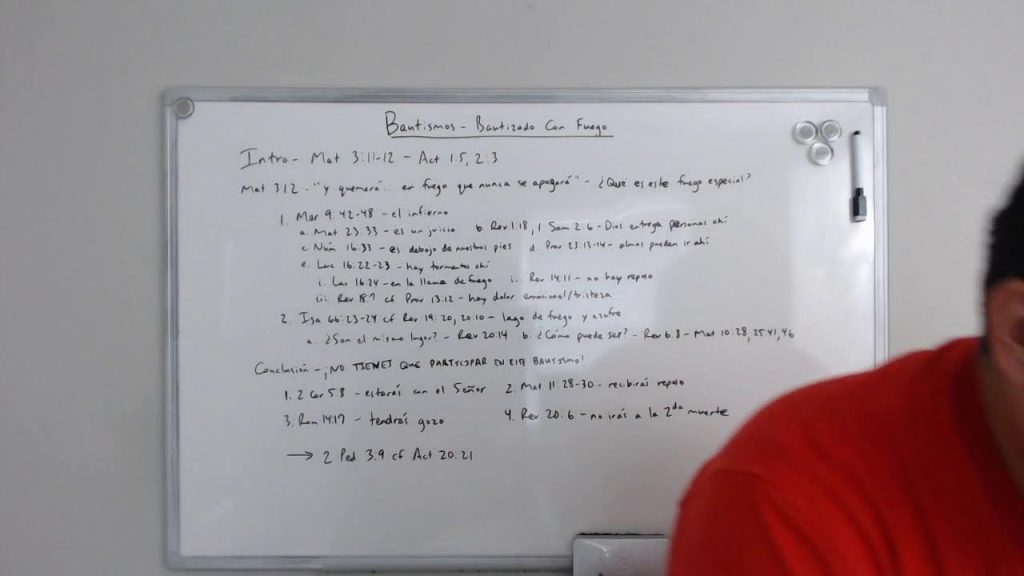 Bautismos - Bautizado Con Fuego
Intro - Mat 3:11-12 - Act 1:5, 2:3
Mat 3:12 - "y quemará... en fuego que nunca se apagará" - ¿Qué es este fuego especial?
1. Mar 9:42-48 - el infierno
a. Mat 23:33 - es un juicio b. Rev 1:18, 1 Sam 2:6 - Dios entrega personas ahí
c. Núm 16:33 - es debajo de nuestros pies d. Prov 23:13-14 - almas pueden ir ahí
e. Luc 16:22-23 - hay tormentos ahí
i. Luc 16:24 - en la llama de fuego ii. Rev 14:11 - no hay reposo
iii. Rev 18:7 cf Prov 13:12 - hay dolor emocional/tristeza
2. Isa 66:23-24 cf Rev 19:20, 20:10 - lago de fuego y azufre
a. ¿Son el mismo lugar? - Rev 20:14 b. ¿Cómo puede ser? - Rev 6:8 - Mat 10:28, 25:41, 46
Conclusión - ¡NO TIENES QUE PARTICIPAR EN ESTE BAUTISMO!
1. 2 Cor 5:8 - estarás con el Señor 2. Mat 11:28-30 - recibirás reposo
3. Rom 14:17 - tendrás gozo 4. Rev 20:6 - no irás a la 2da muerte
→ 2 Ped 3:9 cf Act 20:21